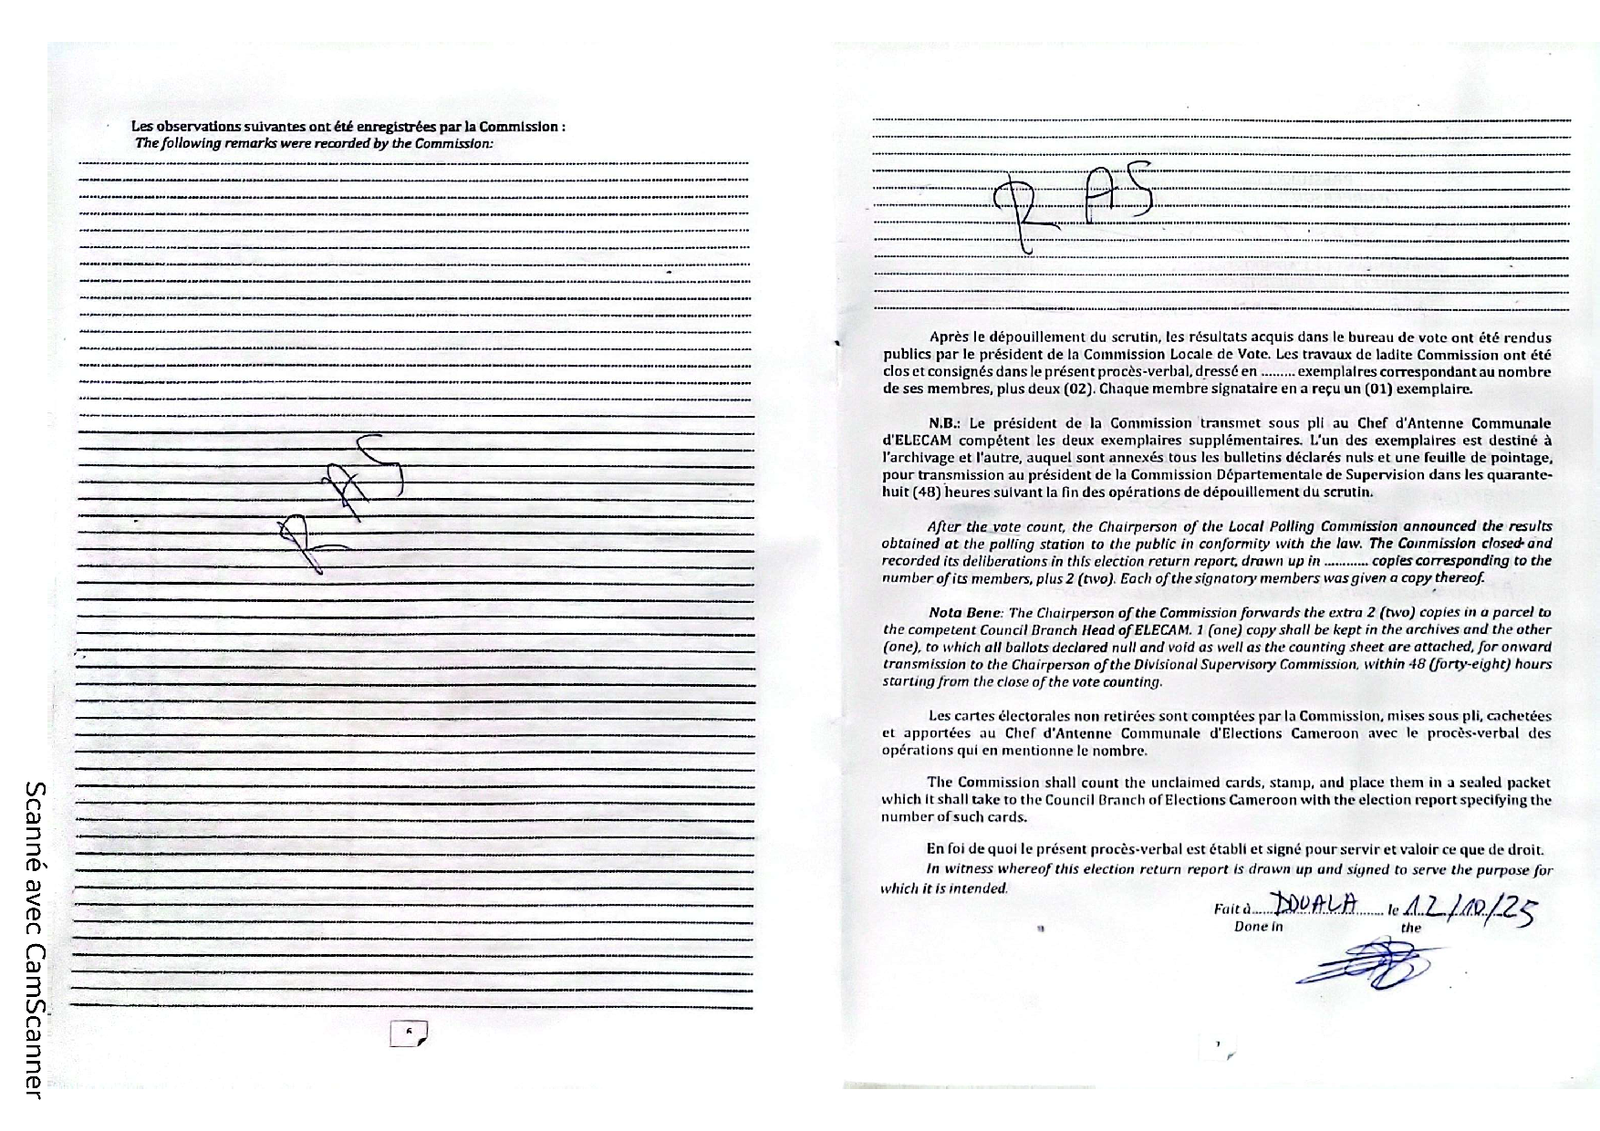 Les observations suivantes ont été enregistrées par la Commission :
The following remarks were recorded by the Commission:
R A S
6
R A S
Après le dépouillement du scrutin, les résultats acquis dans le bureau de vote ont été rendus
publics par le président de la Commission Locale de Vote. Les travaux de ladite Commission ont été
clos et consignés dans le présent procès-verbal, dressé en ......... exemplaires correspondant au nombre
de ses membres, plus deux (02). Chaque membre signataire en a reçu un (01) exemplaire.
N.B.: Le président de la Commission transmet sous pli au Chef d'Antenne Communale
d'ELECAM compétent les deux exemplaires supplémentaires. L'un des exemplaires est destiné à
l'archivage et l'autre, auquel sont annexés tous les bulletins déclarés nuls et une feuille de pointage,
pour transmission au président de la Commission Départementale de Supervision dans les quarante-
huit (48) heures suivant la fin des opérations de dépouillement du scrutin.
After the vote count, the Chairperson of the Local Polling Commission announced the results
obtained at the polling station to the public in conformity with the law. The Commission closed and
recorded its deliberations in this election return report, drawn up in ............ copies corresponding to the
number of its members, plus 2 (two). Each of the signatory members was given a copy thereof.
Nota Bene: The Chairperson of the Commission forwards the extra 2 (two) copies in a parcel to
the competent Council Branch Head of ELECAM. 1 (one) copy shall be kept in the archives and the other
(one), to which all ballots declared null and void as well as the counting sheet are attached, for onward
transmission to the Chairperson of the Divisional Supervisory Commission, within 48 (forty-eight) hours
starting from the close of the vote counting.
Les cartes électorales non retirées sont comptées par la Commission, mises sous pli, cachetées
et apportées au Chef d'Antenne Communale d'Elections Cameroon avec le procès-verbal des
opérations qui en mentionne le nombre.
The Commission shall count the unclaimed cards, stamp, and place them in a sealed packet
which it shall take to the Council Branch of Elections Cameroon with the election report specifying the
number of such cards.
En foi de quoi le présent procès-verbal est établi et signé pour servir et valoir ce que de droit.
In witness whereof this election return report is drawn up and signed to serve the purpose for
which it is intended.
Fait à..... DOUALA ...... le 12/10/25
Done in the
Scanné avec CamScanner